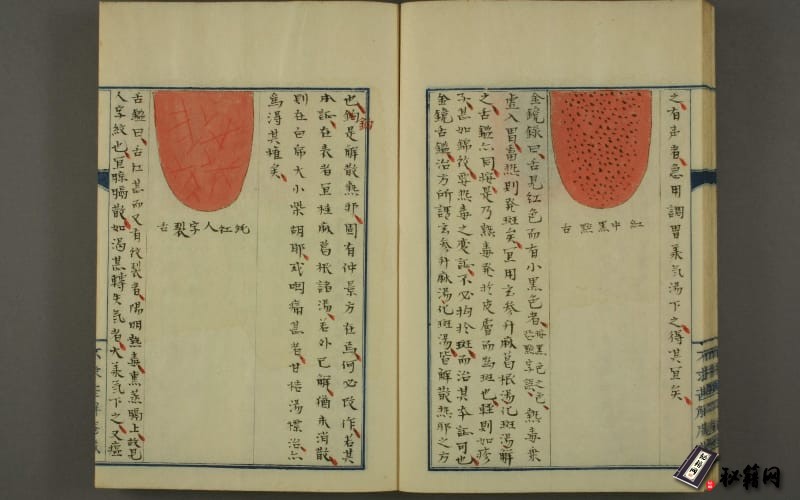 之有声者急用調胃承气湯下之得其宜矣
紅中黑點舌
金鏡錄曰舌見紅色而有小黑色者熱毒乗
虚入胃畜熱則発斑矣宜用玄参升麻葛根湯化斑湯解
之舌鑑亦同按是乃熱毒発於皮膚而為斑也軽則如疹
子甚如錦紋蓋熱毒之変証不必拘於斑而治其本証可也
金鏡舌鑑治方所謂玄参升麻湯化斑湯皆解散熱邪之方
也鈎是解散熱邪固有仲景方在焉何必改作若其
本証在表者宜桂麻葛根諸湯若外已解猶未消散
則在白虎大小柴胡耶或咽痛甚者甘桔湯治亦
為得其権矣
純紅人字裂舌
舌鑑曰舌紅甚而又有紋裂者陽明熱毒熏蒸膈上故見
人字紋也宜涼膈散如渇甚轉失气者大承气下之又痙
秘籍网